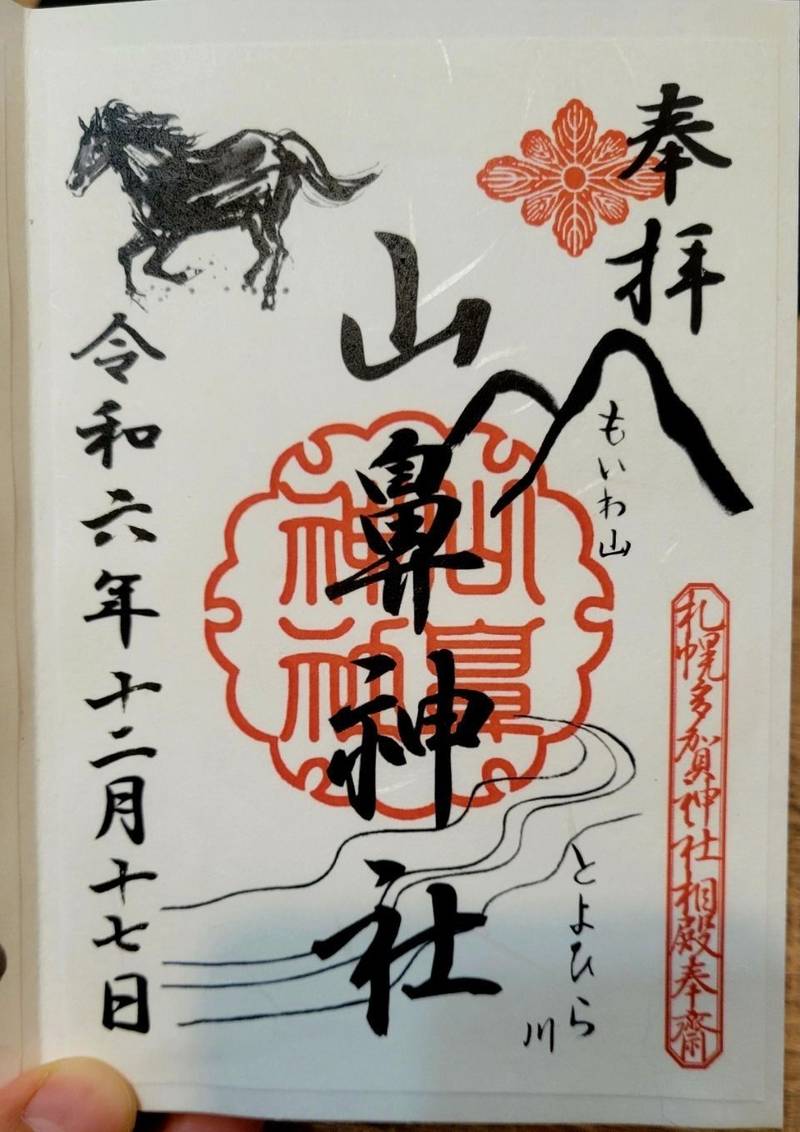 奉拝
もいわ山
札幌多賀神社相殿奉齋
山鼻神社
山鼻神社
とよひら
川
令和六年十二月十七日